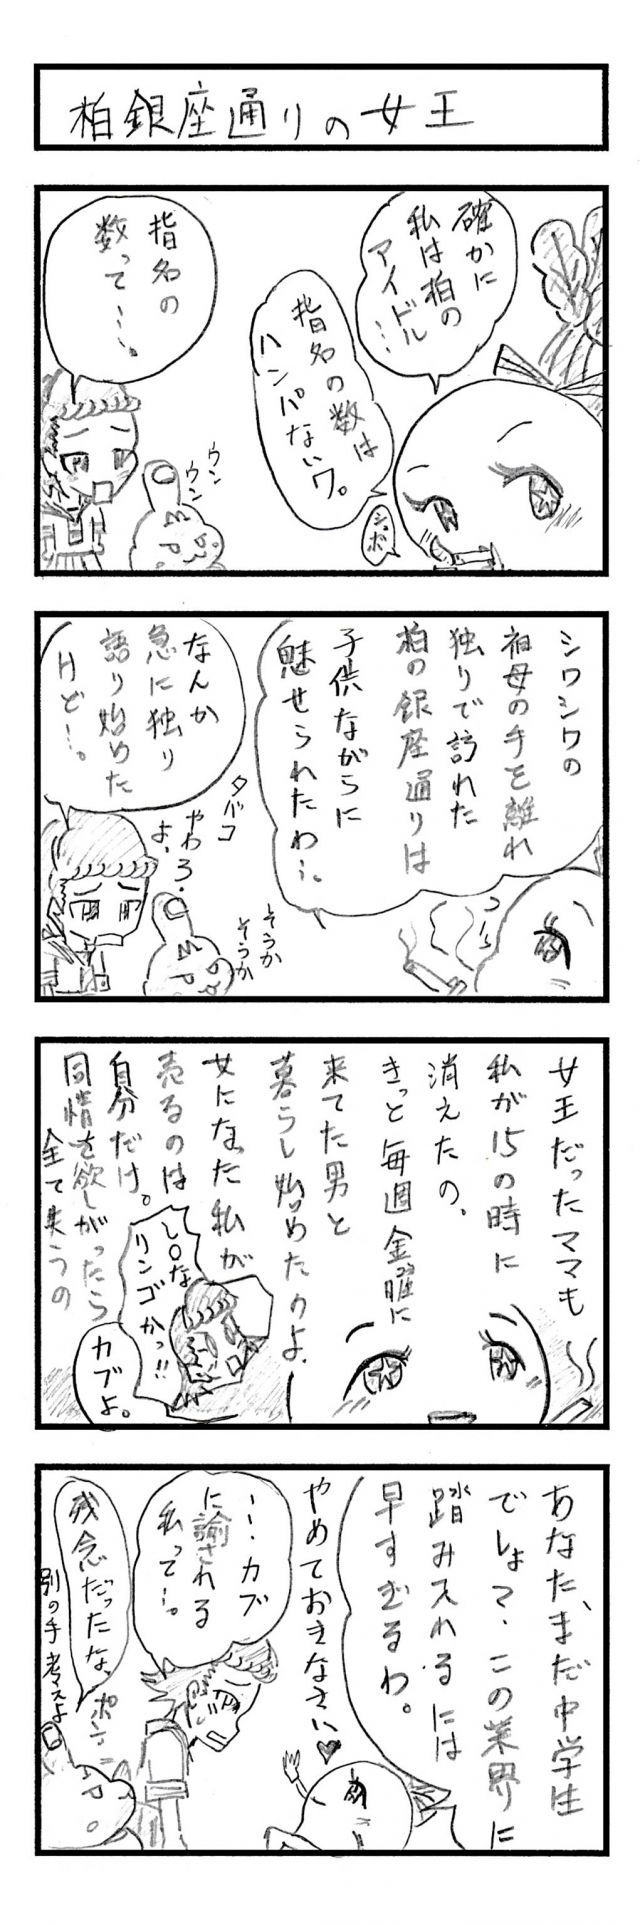 柏銀座通りの女王
確かに
私は柏の
アイドル…
指名の数は
ハンパないワ。
シュボ
指名の
数って…。
ウン
ウン
シワシワの
祖母の手を離れ
独りで訪れた
柏の銀座通りは
子供ながらに
魅せられたわ…。
なんか
急に独り
語り始めた
けど…。
タバコ
やめろ
よ。
そうか
そうか
女王だったママも
私が15の時に
消えたの、
きっと毎週金曜に
来てた男と
暮らし始めたのよ.
女になった私が
売るのは
自分だけ。
同情を欲しがったら
全て失うの
し○な
リンゴかっ!!
カブよ。
あなた、まだ中学生
でしょ?この業界に
踏み入れるには
早すぎるわ。
やめておきなさい♥
…カブ
に諭される
私って…。
残念だったな、ポン
別の手考えよ